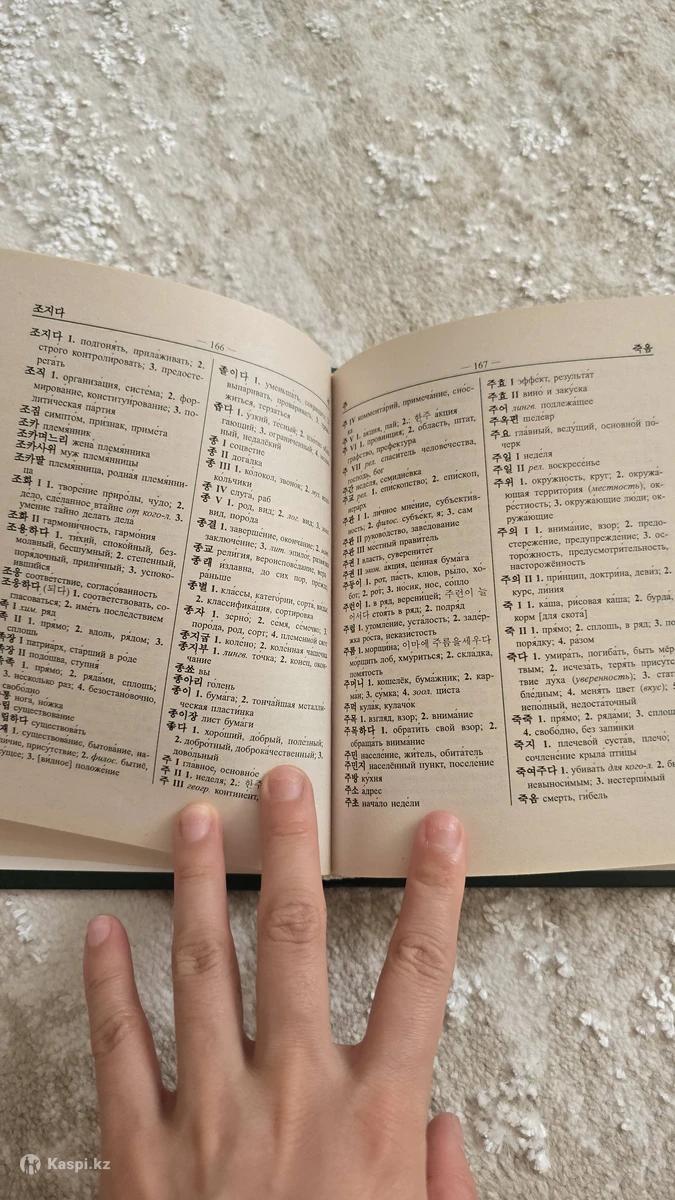 조지다
— 166 —
조지다 1. подгонять, прилаживать; 2.
строго контролировать; 3. предосте-
регать
조직 1. организация, система; 2. фор-
мирование, конституирование; 3. по-
литическая партия
조짐 симптом, признак, примета
조카 племянник
조카며느리 жена племянника
조카사위 муж племянницы
조카딸 племянница, родная племянни-
ца
조화 I 1. творение природы, чудо; 2.
дело, сделанное втайне от кого-л. 3.
умение тайно делать дела
조화 II гармоничность, гармония
조용하다 1. тихий, спокойный, без-
молвный, бесшумный; 2. степенный,
порядочный, приличный; 3. успоко-
ившийся
조응 соответствие, согласованность
조응하다 (되다) 1. соответствовать, со-
гласоваться; 2. иметь последствием
I хим. ряд
II 1. прямо; 2. вдоль, рядом; 3.
сплошь
I патриарх, старший в роде
II подошва, ступня
1. прямо; 2. рядами, сплошь;
3. несколько раз; 4. безостановочно,
свободно
нога, ножка
существование
существовать
1. существование, бытование, на-
личие, присутствие; 2. филос. бытиё,
сущее; 3. [видное] положение
졸이다 1. уменьшать, сокращ
выпаривать, провяривать; 3.
житься, терзаться
좁다 1. узкий, тесный; 2.
гающий; 3. ограниченный; 4.
ный, недалёкий
종 I соцветие
종 II догадка
종 III 1. колокол, звонок; 2. муз.
кольчики
종 IV слуга, раб
종 V 1. род, вид; 2. лог. вид; 3.
вид, порода
종결 1. завершение, окончание; 2.
заключение; 3. лит. эпилог, развяз
종교 религия, вероисповедание, вера
종래 издавна, до сих пор, прежде,
раньше
종별 1. классы, категории, сорта, виды
2. классификация, сортировка
종자 1. зерно; 2. семя, семечко; 3.
порода, род, сорт; 4. племенной скот
종지굽 1. колено; 2. коленная чашечка
종지부 1. лингв. точка; 2. конец, окон-
чание
종쏘 вы
종아리 голень
종이 1. бумага; 2. тончайшая металли-
ческая пластинка
종이장 лист бумаги
좋다 1. хороший, добрый, полезный;
2. добротный, доброкачественный; 3.
довольный
주 I главное, основное
주 II 1. неделя; 2.: 한주
주 III геогр. континент,
주
— 167 —
죽음
주 IV комментарий, примечание, снос-
주 V 1. акция, пай; 2.: 한주 акция
주 VI 1. провинция; 2. область, штат,
графство, префектура
주 VII рел. спаситель человечества,
господь, бог
주간 неделя, семидневка
рел. 1. епископство; 2. епископ,
иерарх
주관 I 1. личное мнение, субъектив-
ность; 2. филос. субъект, я; 3. сам
주관 II руководство, заведование
주관 III местный правитель
주권 I власть, суверенитет
주권 II эк. акция, ценная бумага
주둥이 1. рот, пасть, клюв, рыло, хо-
бот; 2. рот; 3. носик, нос, сопло
주런이 1. в ряд, вереницей; 주런이 늘
어서다 стоять в ряд; 2. подряд
1. утомление, усталость; 2. задер-
жка роста, неказистость
주름 1. морщина; 이마에 주름을세우다
морщить лоб, хмуриться; 2. складка,
помятость
주머니 1. кошелёк, бумажник; 2. кар-
ман; 3. сумка; 4. зоол. циста
주먹 кулак, кулачок
주목 1. взгляд, взор; 2. внимание
주목하다 1. обратить свой взор; 2.
обращать внимание
주민 население, житель, обитатель
주민지 населённый пункт, поселение
주방 кухня
주소 адрес
주초 начало недели
주효 I эффект, результат
주효 II вино и закуска
주어 лингв. подлежащее
주옥편 шедевр
주요 главный, ведущий, основной по-
черк
주일 I неделя
주일 II рел. воскресенье
주위 1. окружность, круг; 2. окружа-
ющая территория (местность), ок-
рестность; 3. окружающие люди; ок-
ружающие
주의 I 1. внимание, взор; 2. предо-
стережение, предупреждение; 3. ос-
торожность, предусмотрительность,
насторожённость
주의 II 1. принцип, доктрина, девиз; 2.
курс, линия
죽 I 1. каша, рисовая каша; 2. бурда,
корм [для скота]
죽 II 1. прямо; 2. сплошь, в ряд; 3. по
порядку; 4. разом
죽다 1. умирать, погибать, быть мёр-
твым; 2. исчезать, терять присутс
твие духа (уверенность); 3. стат
бледным; 4. менять цвет (вкус); 5
неполный, недостаточный
죽죽 1. прямо; 2. рядами; 3. сплош
4. свободно, без запинки
죽지 1. плечевой сустав, плечо;
сочленение крыла птицы
죽여주다 1. убивать для кого-л. 2. бы
невыносимым; 3. нестерпимый
죽음 смерть, гибель
Kaspi.kz